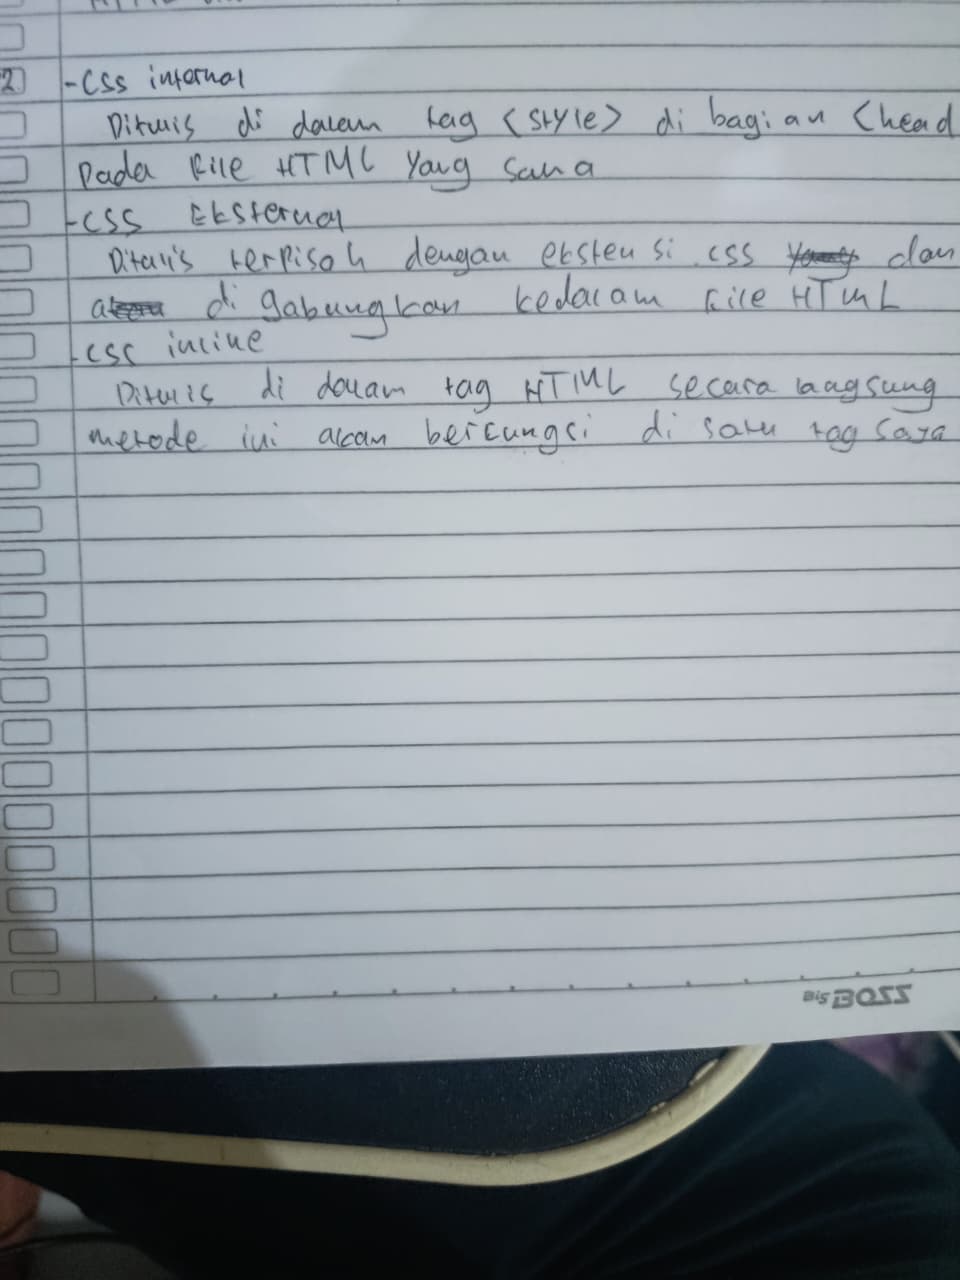 2 - CSS internal
Ditulis di dalam tag <style> di bagian <head
pada file HTML yang sama
- CSS Eksternal
Ditulis terpisah dengan ekstensi .css dan
di gabungkan kedalam file HTML
- CSS inline
Ditulis di dalam tag HTML secara langsung
metode ini akan berfungsi di satu tag saja
Big BOSS